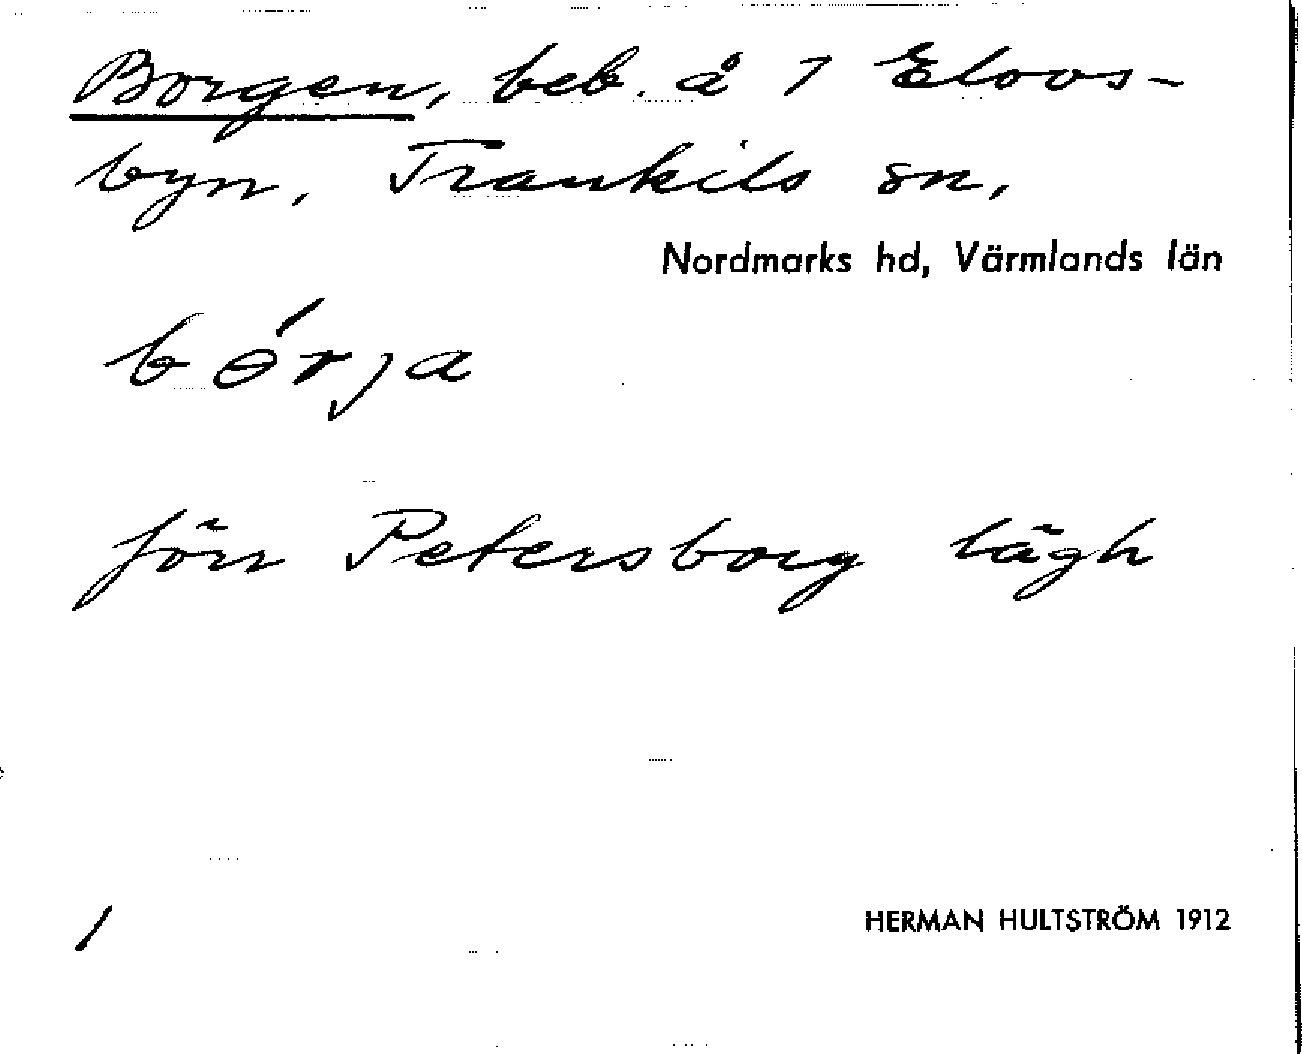 Borgen, beb. å 7 Elovs-
byn, Trankils sn,
Nordmarks hd, Värmlands län
bɵ́rja
förr Petersborg lägh
1
HERMAN HULTSTRÖM 1912